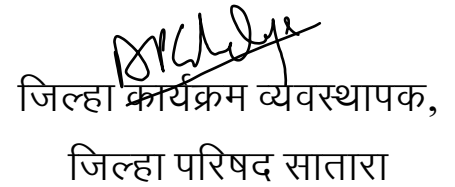 जिल्हा कार्यक्रम व्यवस्थापक,
जिल्हा परिषद सातारा